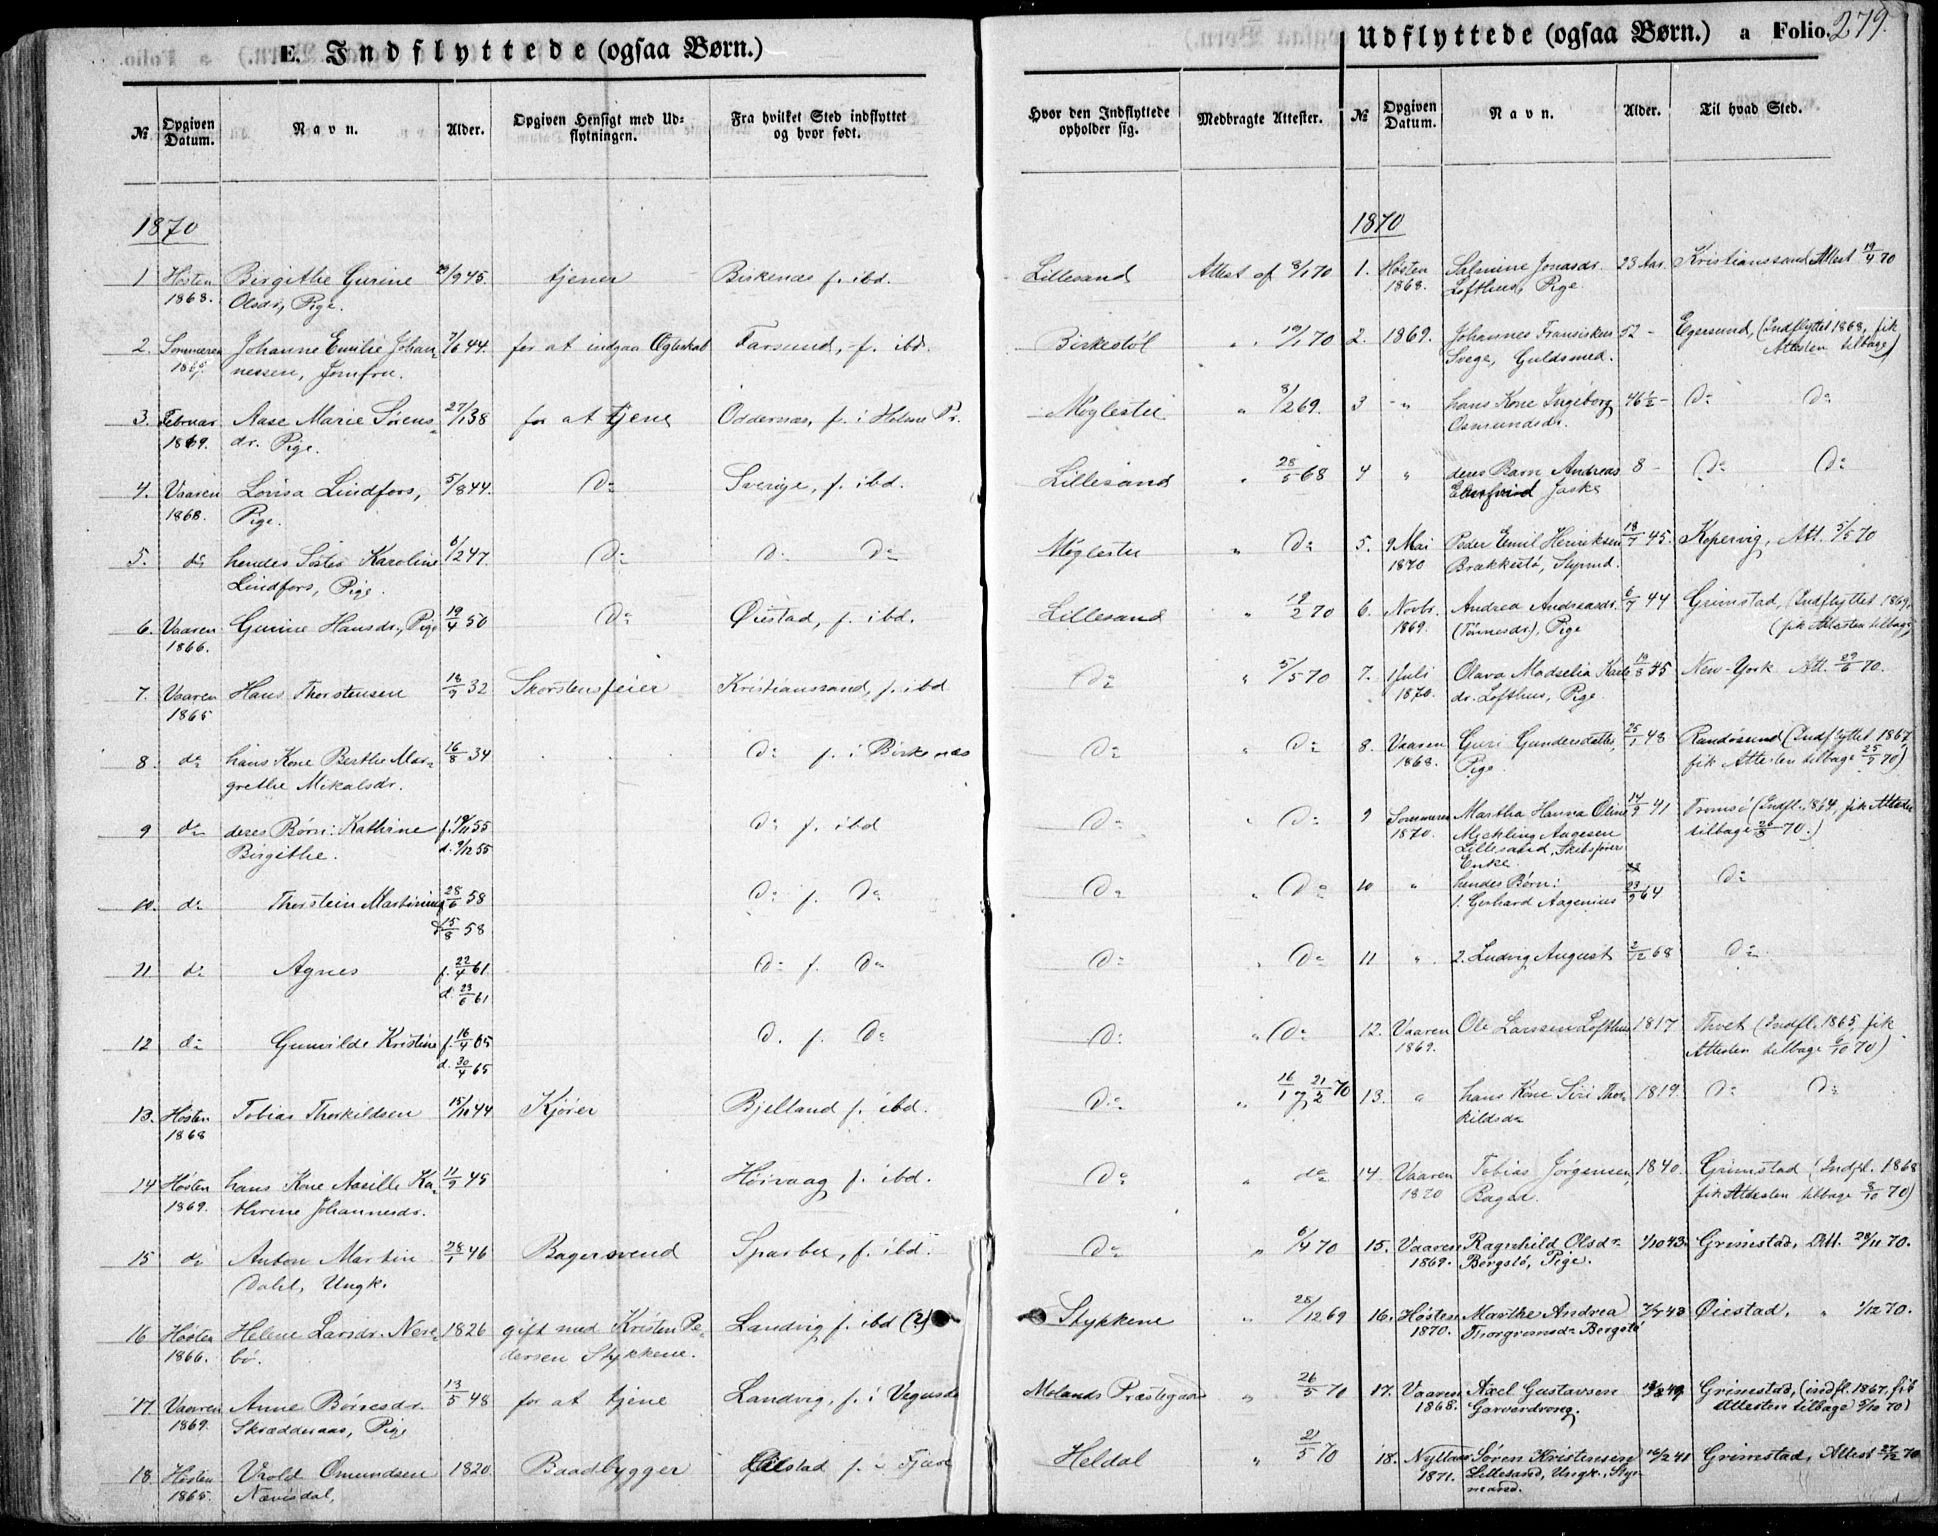 E. Indflyttede (ogsaa Børn.)
№
Opgiven Datum.
Navn.
Alder.
Opgiven Hensigt med Udflytningen.
Fra hvilket Sted indflyttet og hvor født.
Hvor den Indflyttede opholder sig.
Medbragte Attester.
1870
1 Høsten Birgithe Gurine 29/9 45 tjener Birkenæs f. ibd. Lillesand Attest af 8/1 70
1868. Olsdr, Pige.
2. Sommeren Johanne Emilie Johan 7/6 44. for at indgaa Ægteskab Farsund, f. ibd. Birkestøl " 19/1 70
nessen, Jomfru.
3. Februar Aase Marie Sørens 27/1 38 for at tjene Oddernæs, f. i Holme Pr. Møglestu " 8/2 69.
1869. dr. Pige.
4. Vaaren Lovisa Lindfors, 5/8 44. do Sverige, f. ibd. Lillesand " 28/5 68
1868. Pige.
5. do hendes Søster Karoline 6/2 47. do do do Møglestu " do
Lindfors, Pige.
6. Vaaren Gurine Hansdr., Pige 19/4 50 do Øiestad, f. ibd. Lillesand " 18/2 70
1866.
7. Vaaren Hans Thorstensen 18/9 32 Skorstensfeier Kristianssand, f. ibd do " 5/5 70
1865
8. do hans Kone Berthe Mar 16/8 34 do f. i Birkenæs do " do
grethe Mikalsdr.
9 do deres Børn: Kathrine f. 19/11 55 do f. ibd do " do
Birgithe. d. 9/12 55
10. do Thorstein Martinius 28/6 58 do f. do do " do
d 15/8 58
11 do Agnes f. 22/4 61. do f. do do " do
d. 23/6 61
12 do Gunvilde Kristine f. 16/4 65 do f. do do " do
d. 30/4 65
13. Høsten Tobias Thorkildsen 15/11 44 Kjører Bjelland f. ibd. do " 16/1 & 21/2 70
1868
14 Høsten hans Kone Aasille Ka 11/9 45 Høivaag f. ibd. do " do
1869. thrine Johannesdr.
15 do Anton Martin 28/1 46 Bagersvend Sparbu, f. ibd. do " 6/4 70
Dahl, Ungk.
16 Høsten Helene Larsdr. Nere 1826 gift med Kristen Pe Landvig f. ibd (2) Stykkene " 28/12 69
1866. bø. dersen Stykkene.
17. Vaaren Anne Børresdr. 13/5 48 for at tjene Landvig, f. i Vegusd Molands Præstegaard " 26/5 70
1869. Skræddernaas, Pige
18. Høsten Vrold Omundsen 1820. Baadbygger f. i Heldal " 21/5 70
1865.
Udflyttede (ogsaa Børn.) a Folio. 279.
№
Opgiven Datum.
Navn.
Alder.
Til hvad Sted.
1870
1. Høsten Salmine Jonasdr. 23 Aar. Kristianssand Attest 19/4 70
1868. Lofthus, Pige.
2. 1869. Johannes Fransisken 52 - Egersund, (Indflyttet 1868, fik
Svege, Guldsmed. Attesten tilbage)
3 " hans Kone Ingeborg 46½ - do do
Osmundsdr.
4 " deres Barn Andreas 8 - do do
Jaske
5. 9 Mai Peder Emil Henriksen 18/7 45. Kopervig, Att. 5/5 70
1870 Brækkestø, Styrmd.
6. Novbr. Andrea Andreasdr. 6/7 44 Grimstad, (Indflyttet 1869,
1869. (Tønnesdr), Pige (fik Attesten tilbage)
7. 1 Juli Olava Madselia Karls 19/8 45 New-York Att. 29/6 70.
1870. dr. Lofthus, Pige
8. Vaaren Guri Gundersdatter, 25/1 48 Randøsund (Indflyttet 1867
1868. Pige. fik Attesten tilbage 25/7 70)
9 Sommeren Martha Hanna Oline 14/9 41 Tromsø (Indfl. 1864, fik Attesten
1870. Michling Aagesen tilbage 26/8 70.)
Lillesand, Skibsfører
Enke.
10 " hendes Børn: do
1. Gerhard Aagenius 23/9 64
11 " 2. Ludvig August 2/12 68 do
12. Vaaren Ole Larssen Lofthus 1817 Thvet (Indfl. 1865, fik
1869. Attesten tilbage 6/10 70)
13. " hans Kone Siri Thor 1819. do do
kildsdr
14. Vaaren Tobias Jørgensen, 1840. Grimstad (Indfl. 1868
1870 Bager. fik Attesten tilbage 8/10 70)
15. Vaaren Ragnhild Olsdr 1/10 43. Grimestad, Att. 29/11 70.
1869. Borgstø, Pige.
16. Høsten Marthe Andrea 7/7 48 Øiestad, " 1/12 70.
1870. Thorgrimsdr Bergstø
17. Vaaren Axel Gustavsen Grimstad, (indfl. 1867, fik
1868. Garverdreng. Attesten tilbage 5/10 70)
18. Nyttaar Søren Kristensen 16/2 41 Grimstad, Attest 27/12 70
1871. Lillesand, Ungk., Styr
mand.